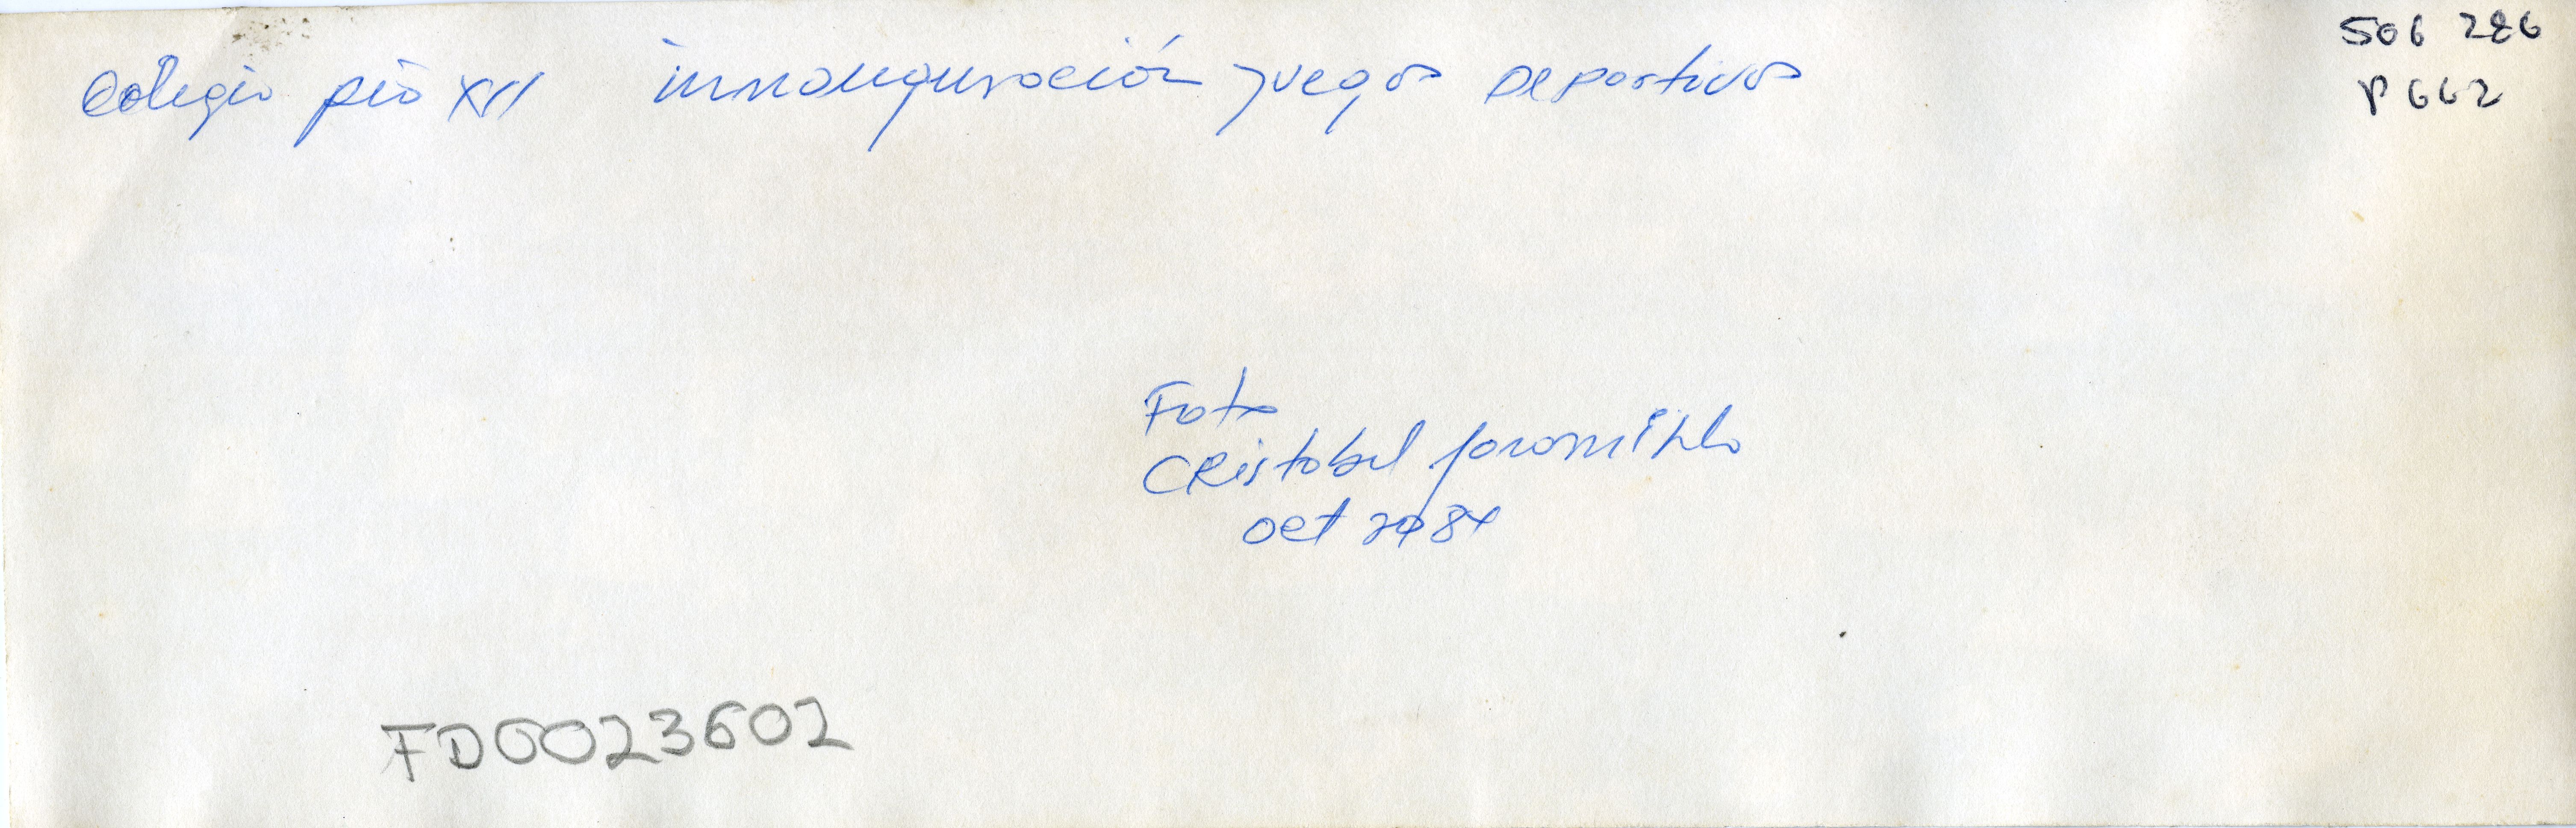 Colegio pio XII innauguración juegos Deportivos
506 286
P 662
Foto
CRistobal jaramillo
oct 84
FD0023602